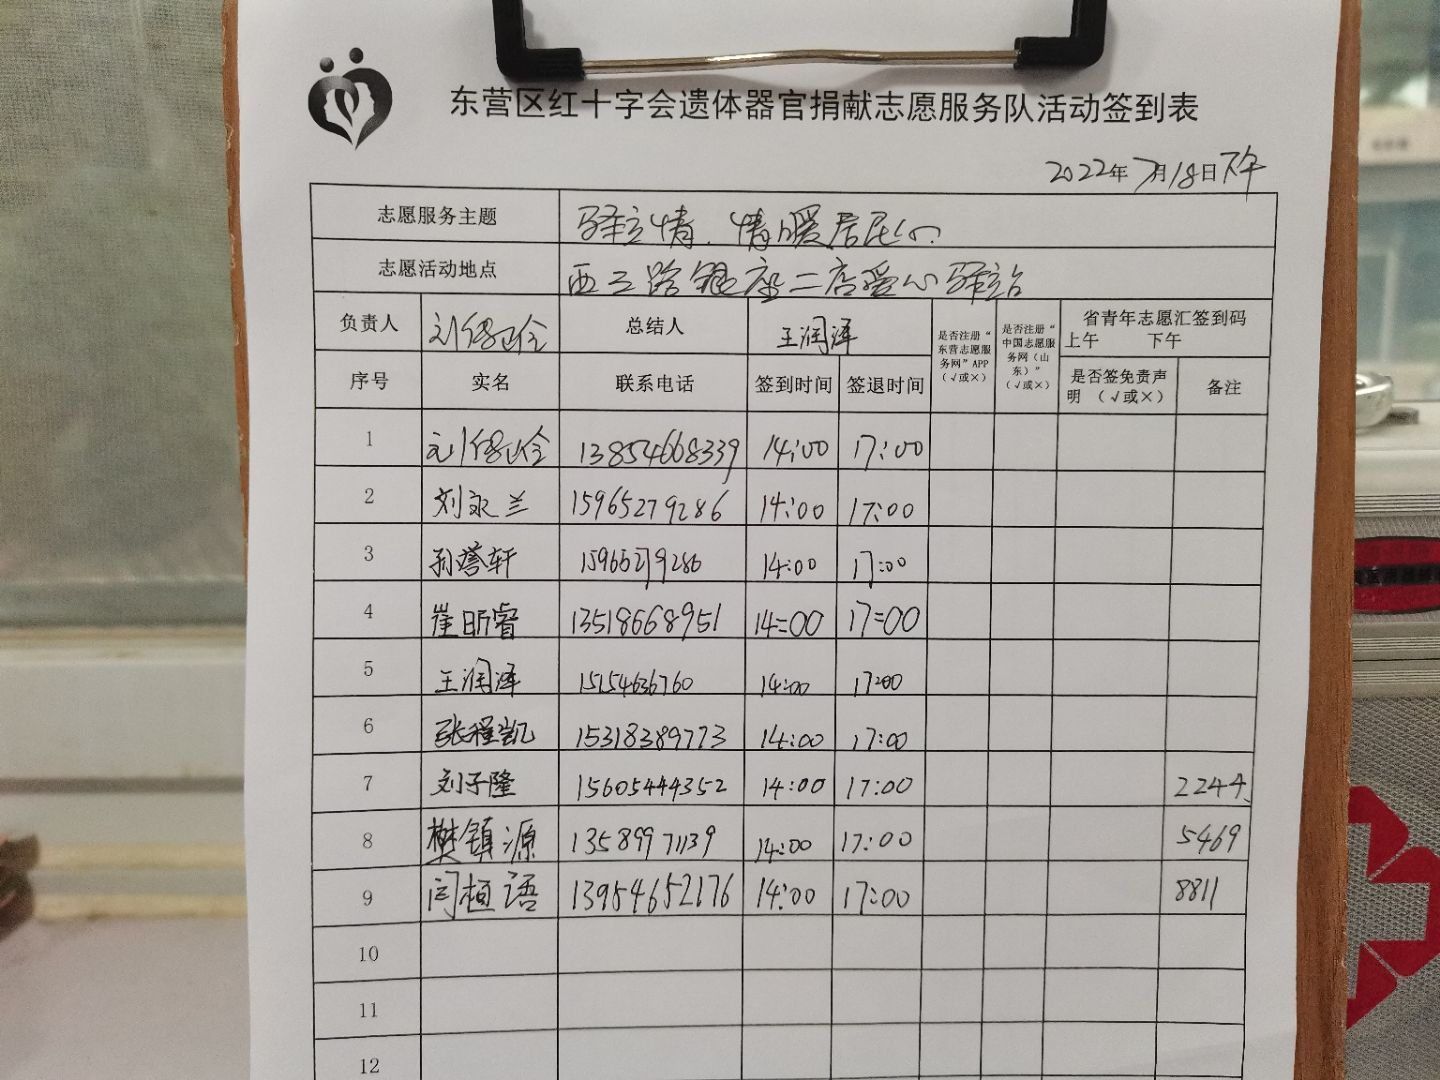 东营区红十字会遗体器官捐献志愿服务队活动签到表
2022年7月18日下午
志愿服务主题 驿立情.情暖居民心
志愿活动地点 西三路银座二店爱心驿站
负责人 总结人 王润泽 是否注册“东营志愿服务网”APP（√或×） 是否注册“中国志愿服务网（山东）”（√或×） 省青年志愿汇签到码 上午 下午
序号 实名 联系电话 签到时间 签退时间 是否签免责声明 （√或×） 备注
1 13854668339 14:00 17:00
2 刘永兰 15965279286 14:00 17:00
3 孙誉轩 15965279286 14:00 17:00
4 崔昕睿 13518668951 14:00 17:00
5 王润泽 15154636760 14:00 17:00
6 张程凯 15318389773 14:00 17:00
7 刘子隆 15605444352 14:00 17:00 2244
8 樊镇源 13589971139 14:00 17:00 5469
9 闫桓语 13954652176 14:00 17:00 8811
10
11
12